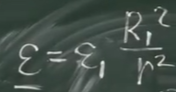 ε = ε₁ R₁² / r²